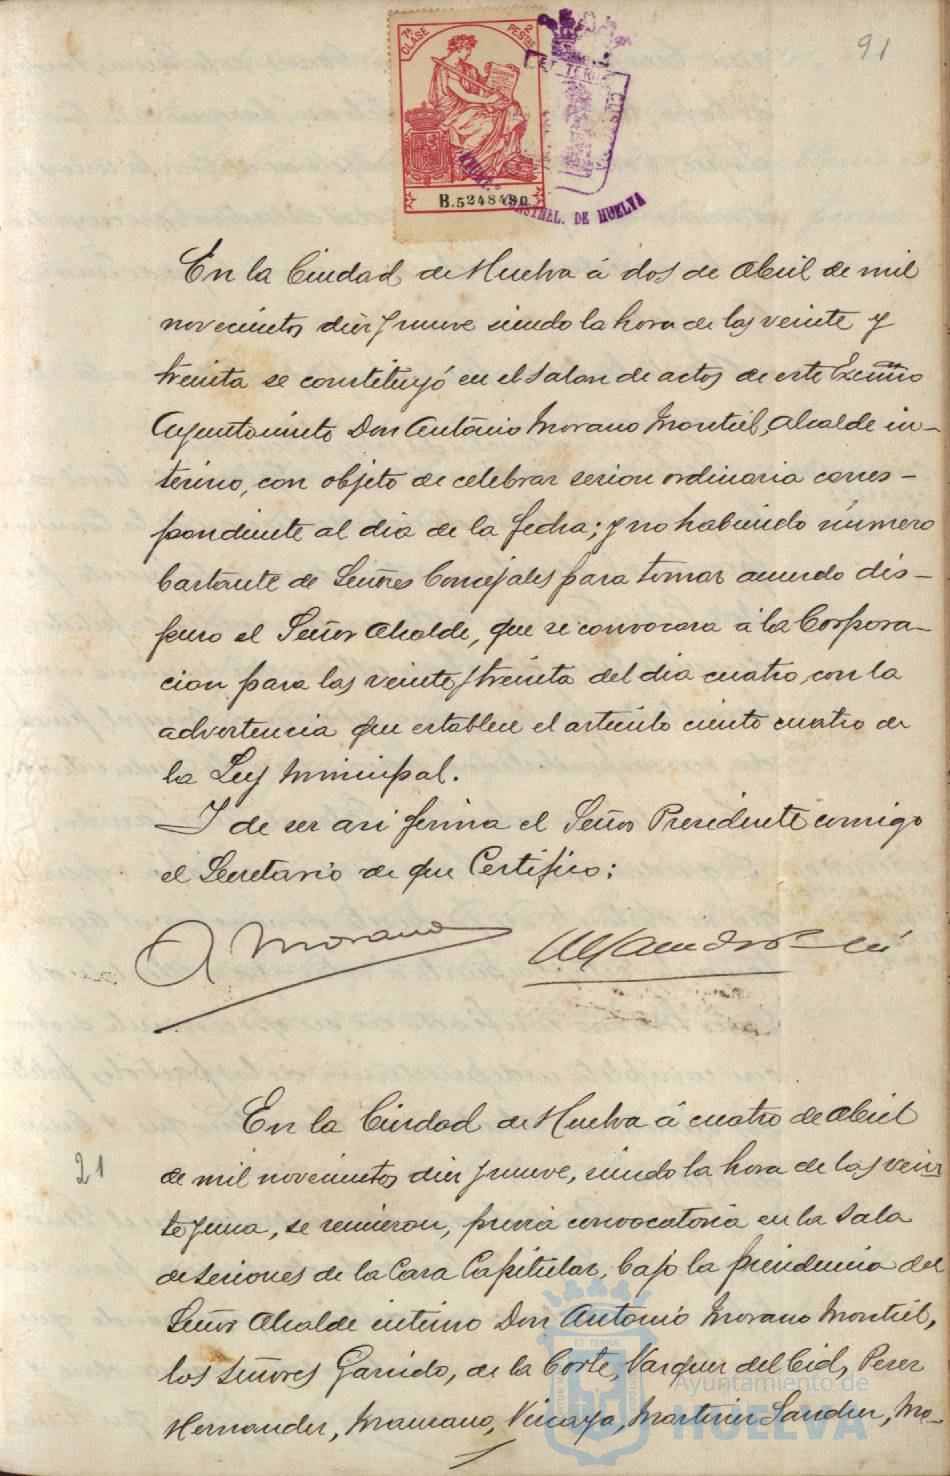 91
7ª CLASE 2 PESETAS
ET TERRÆ CUSTODIA
B.5248480
CONSTNAL. DE HUELVA
En la Ciudad de Huelva á dos de Abril de mil
novecientos diez y nueve siendo la hora de las veinte y
treinta se constituyó en el Salon de actos de este Excmo
Ayuntamiento Don Antonio Morano Montiel, Alcalde in-
terino, con objeto de celebrar sesion ordinaria corres-
pondiente al dia de la fecha; y no habiendo número
bastante de Señores Concejales para tomar acuerdo dis-
puso el Señor Alcalde, que se convocara á la Corpora-
cion para las veinte y treinta del dia cuatro, con la
advertencia que establece el artículo ciento cuatro de
la Ley Municipal.
Y de ser asi firma el Señor Presidente comigo
el Secretario de que Certifico:
A Morano
21
En la Ciudad de Huelva á cuatro de Abril
de mil novecientos diez y nueve, siendo la hora de las vein-
te y una, se reunieron, previa convocatoria en la Sala
de sesiones de la Casa Capitular, bajo la presidencia del
Señor Alcalde interino Don Antonio Morano Montiel,
los Señores Garrido, de la Corte, Vazquez del Cid, Perez
Hernandez, Manzano, Vizcaya, Martinez Sanchez, Mo-
ET TERRÆ
Ayuntamiento de
HUELVA